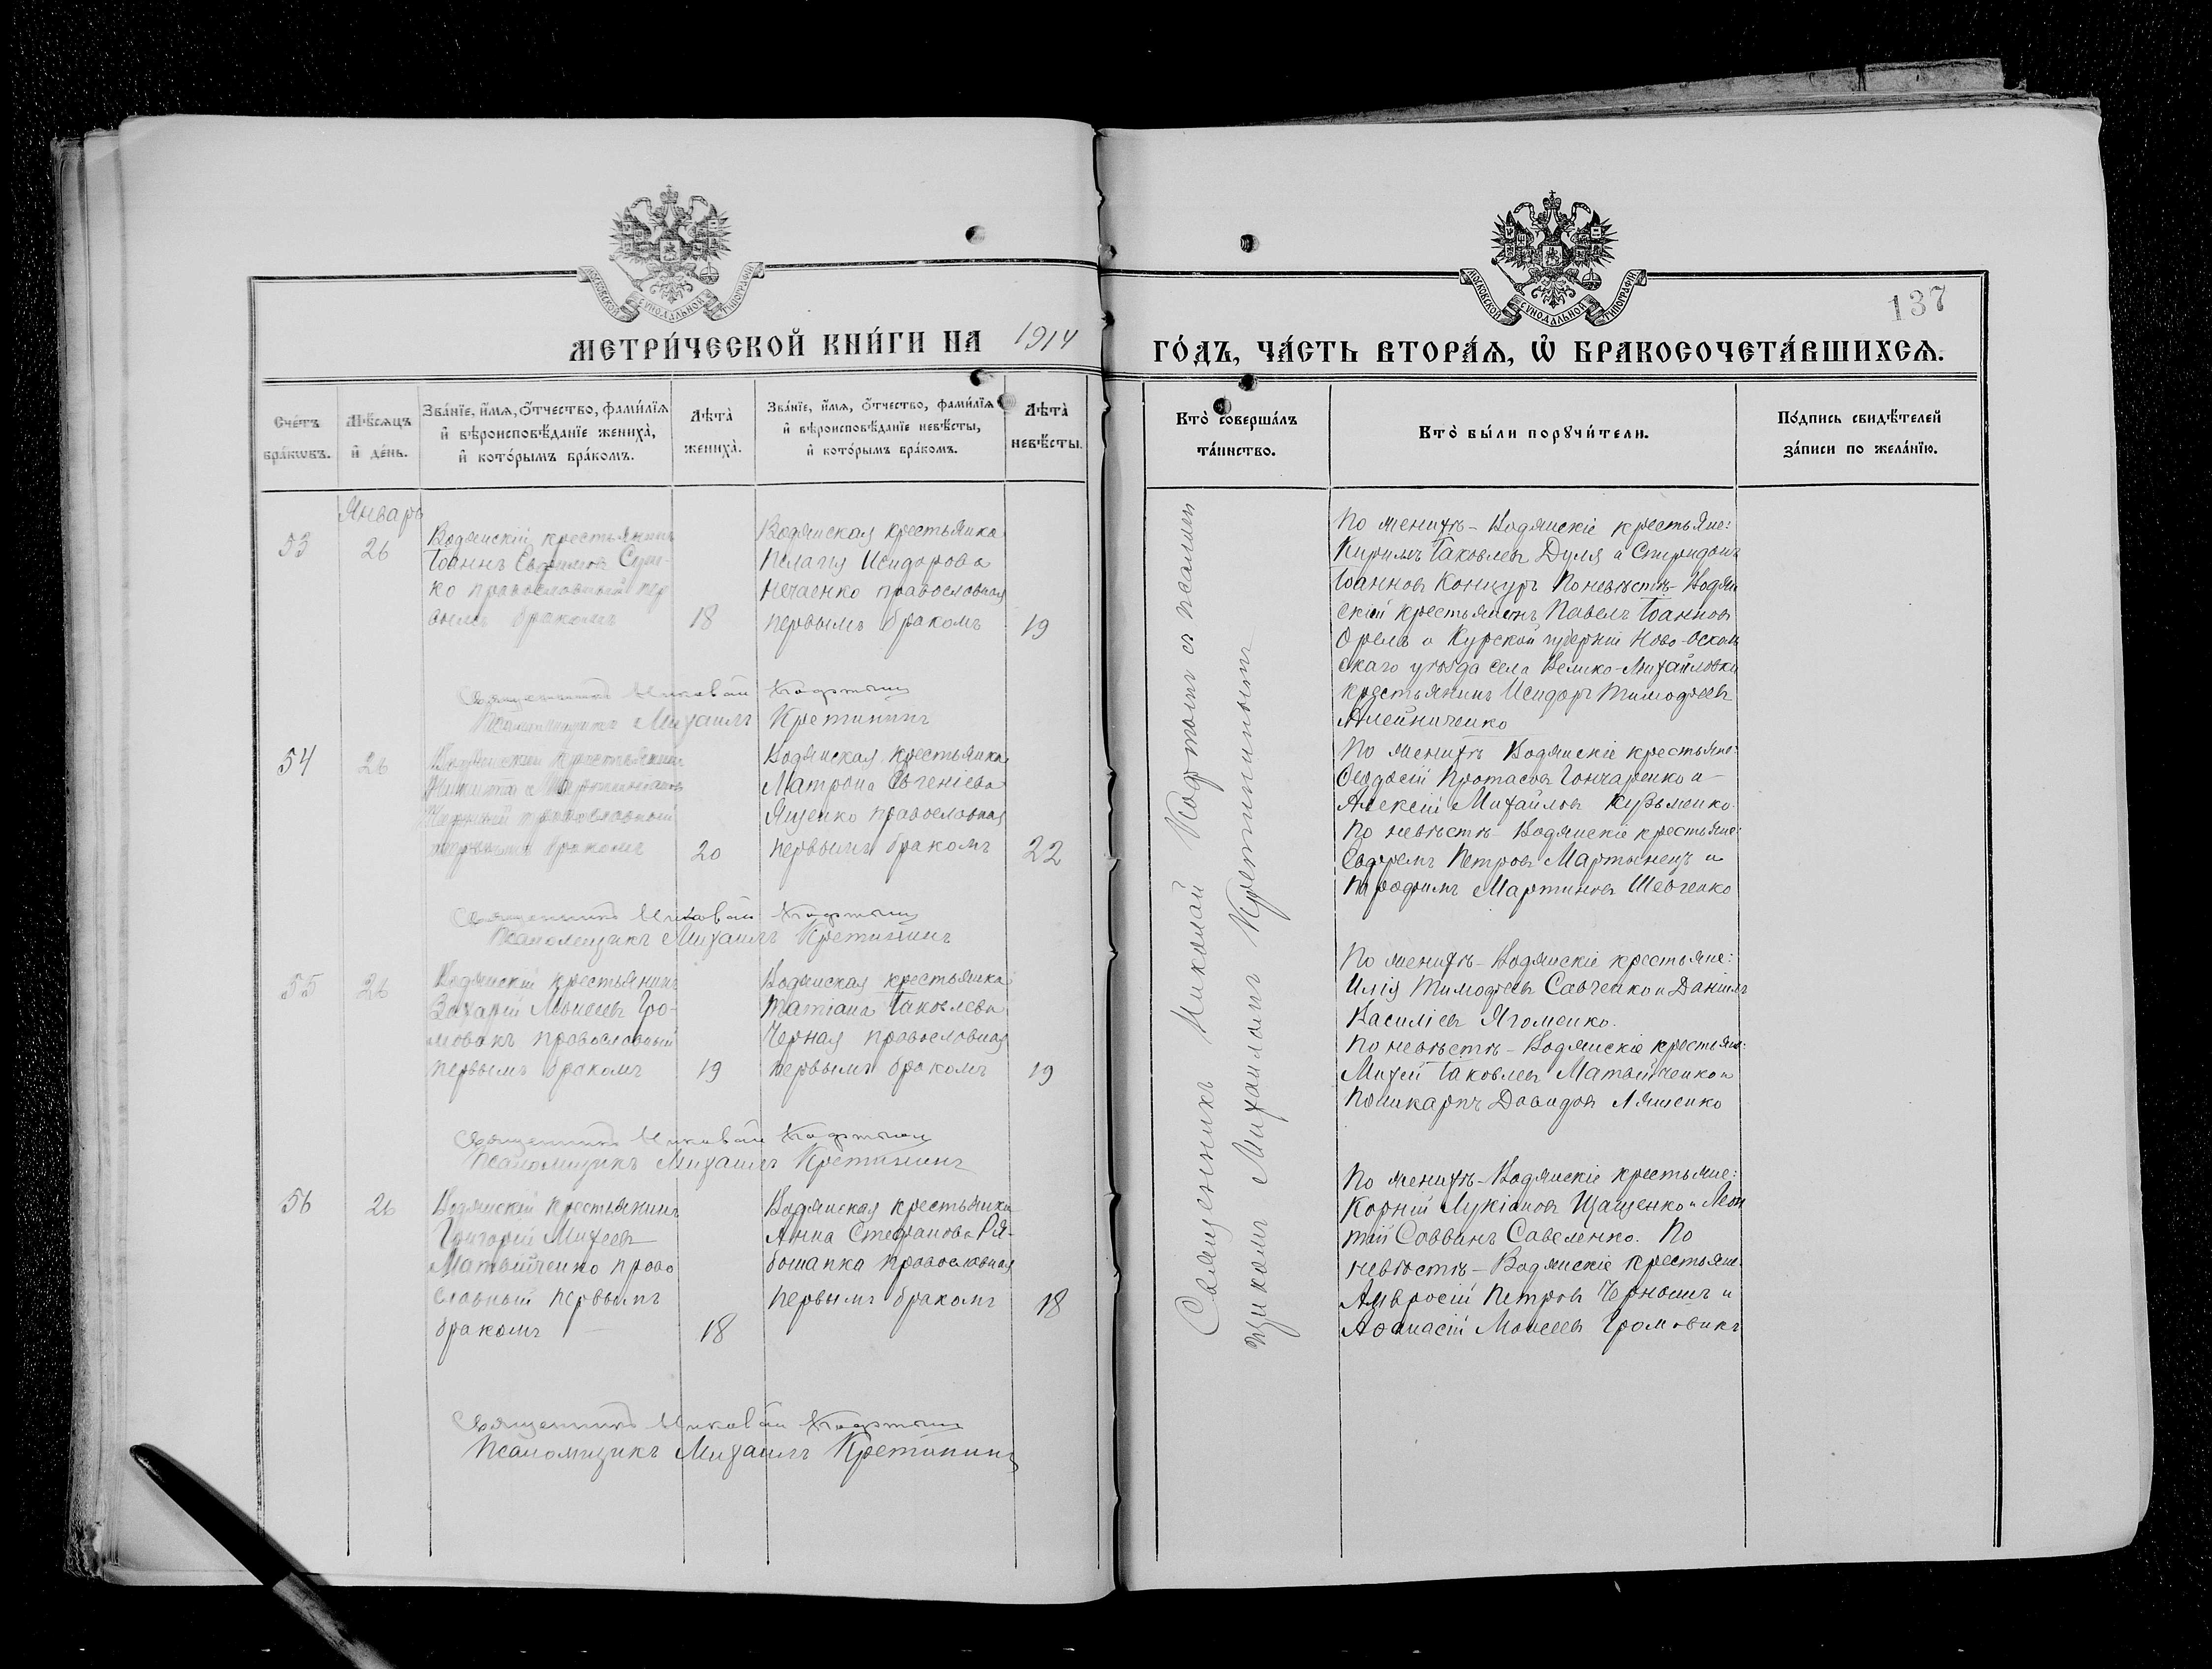 МОСКОВСКОЙ СУНОДАЛЬНОЙ ТИПОГРАФІИ
МЕТРИ́ЧЕСКОЙ КНИ́ГИ НА 1914
Сче́тъ бра́кѡвъ.
Мѣ́сяцъ и҆ де́нь.
Зва́нїе, и҆́мѧ, ѻ҆́тчество, фами́лїѧ
и҆ вѣроисповѣ́данїе жениха̀,
и҆ кото́рымъ бра́комъ.
Лѣта̀ жениха̀.
Зва́нїе, и҆́мѧ, ѻ҆́тчество, фами́лїѧ
и҆ вѣроисповѣ́данїе невѣ́сты,
и҆ кото́рымъ бра́комъ.
Лѣта̀ невѣ́сты.
Январь
53
26
Водянскій крестьянинъ
Іоаннъ Евфимовъ
ко православный пер
вымъ бракомъ
18
Водянская крестьянка
Пелагія Исидорова
Нечаенко православная
первымъ бракомъ
19
Священникъ Николай
Псаломщикъ Михаилъ Кретининъ
54
26
Водянскій крестьянинъ
Никита
православный
первымъ бракомъ
20
Водянская крестьянка
Матрона Евгеніева
Ященко православная
первымъ бракомъ
22
Священникъ Николай
Псаломщикъ Михаилъ Кретининъ
55
26
Водянскій крестьянинъ
Захарій Моисеевъ Гро-
мовикъ православный
первымъ бракомъ
19
Водянская крестьянка
Татіана Іаковлева
Черная православная
первымъ бракомъ
19
Священникъ Николай
Псаломщикъ Михаилъ Кретининъ
56
26
Водянскій крестьянинъ
Григорій Михеевъ
Матвійченко право
славный первымъ
бракомъ
18
Водянская крестьянка
Анна Стефанова Ря-
бошапка православная
первымъ бракомъ
18
Священникъ Николай
Псаломщикъ Михаилъ Кретининъ
МОСКОВСКОЙ СУНОДАЛЬНОЙ ТИПОГРАФІИ
137
ГО́ДЪ, ЧА́СТЬ ВТОРА́Ѧ, Ѡ҆ БРАКОСОЧЕТА́ВШИХСѦ.
Кто̀ соверша́лъ
та́инство.
Кто̀ бы́ли порꙋчи́тели.
По́дпись свидѣ́телей
за́писи по жела́нїю.
Священникъ Николай съ псалом
щикомъ Михаиломъ Кретининымъ
По женихѣ - Водянскіе крестьяне:
Кириллъ Іаковлевъ Дуля и Спиридонъ
Іоанновъ По невѣстѣ - Водян
скій крестьянинъ Павелъ Іоанновъ
Орелъ и Курской губерніи Ново-Осколь
скаго уѣзда села Велико-Михайловки
крестьянинъ Исидоръ Тимофеевъ
Алейниченко
По женихѣ Водянскіе крестьяне:
Феодосій Протасовъ Гончаренко и
Алексій Михайловъ Кузьменко.
По невѣстѣ - Водянскіе крестьяне:
Ефремъ Петровъ Мартынецъ и
Мартиновъ Шевченко
По женихѣ - Водянскіе крестьяне:
Илія Тимофеевъ Савченко и Даніилъ
Василіевъ Ягоменко.
По невѣстѣ - Водянскіе крестьяне:
Михей Іаковлевъ Матвійченко и
Поликарпъ Давидовъ Ляшенко
По женихѣ - Водянскіе крестьяне:
Корній Лукіановъ Щащенко и Леон
тій Саввинъ Савеленко. По
невѣстѣ - Водянскіе крестьяне:
Амвросій Петровъ и
Афанасій Моисеевъ Громовикъ